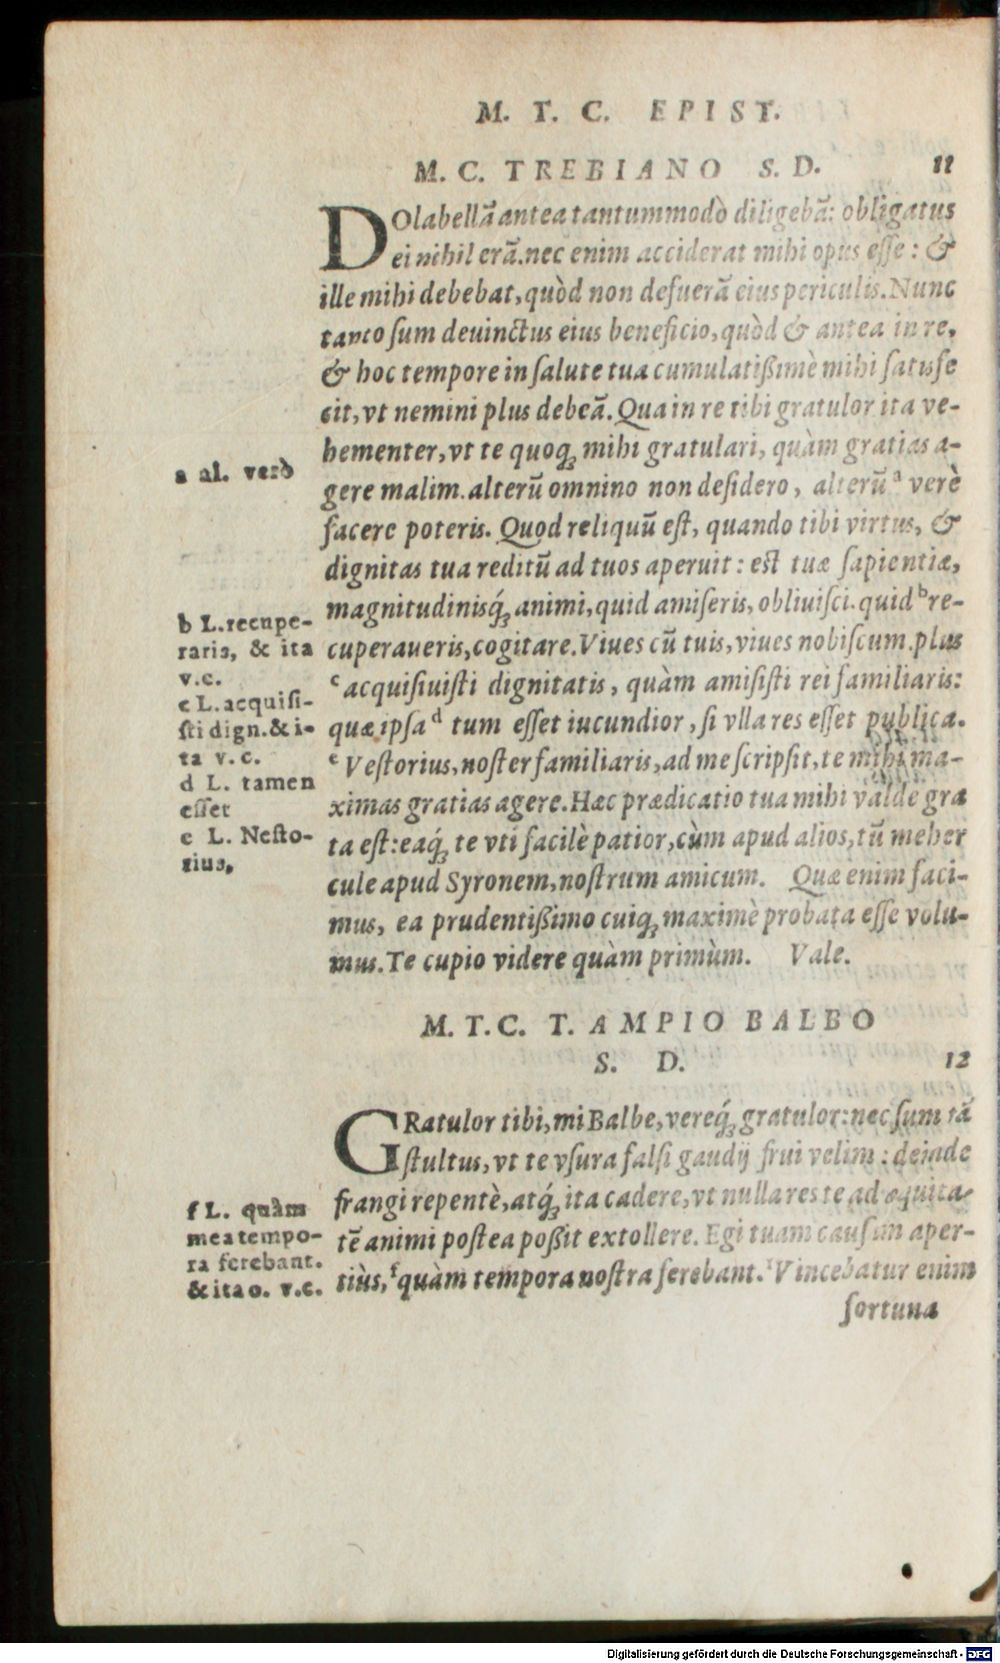 M. T. C. EPIST.
M. C. TREBIANO S. D. 11
DOlabellã antea tantummodò diligebã: obligatus
ei nihil erã. nec enim acciderat mihi opus esse: &
ille mihi debebat, quòd non defuerã eius periculis. Nunc
tanto sum deuinctus eius beneficio, quòd & antea in re,
& hoc tempore in salute tua cumulatißimè mihi satisfe
cit, vt nemini plus debeã. Qua in re tibi gratulor ita ve-
hementer, vt te quoq́; mihi gratulari, quàm gratias a-
gere malim. alterũ omnino non desidero, alterũ ᵃ verè
facere poteris. Quod reliquũ est, quando tibi virtus, &
dignitas tua reditũ ad tuos aperuit: est tuæ sapientiæ,
magnitudinisq́; animi, quid amiseris, obliuisci. quid ᵇ re-
cuperaueris, cogitare. Viues cũ tuis, viues nobiscum. plus
ᶜ acquisiuisti dignitatis, quàm amisisti rei familiaris:
quæ ipsa ᵈ tum esset iucundior, si vlla res esset publica.
ᵉ Vestorius, noster familiaris, ad me scripsit, te mihi ma-
ximas gratias agere. Hæc prædicatio tua mihi valde gra
ta est: eaq́; te vti facilè patior, cùm apud alios, tũ meher
cule apud Syronem, nostrum amicum. Quæ enim faci-
mus, ea prudentißimo cuiq; maximè probata esse volu-
mus. Te cupio videre quàm primùm. Vale.
a al. verò
b L. recupe-
raris, & ita
v.c.
c L. acquisi-
sti dign. & i-
ta v. c.
d L. tamen
esset
e L. Nesto-
rius,
M. T. C. T. AMPIO BALBO
S. D. 12
GRatulor tibi, mi Balbe, vereq́; gratulor: nec sum tã
stultus, vt te vsura falsi gaudij frui velim: deinde
frangi repentè, atq́; ita cadere, vt nulla res te ad æquita-
tẽ animi postea poßit extollere. Egi tuam causam aper-
tiùs, ᶠ quàm tempora nostra ferebant. Vincebatur enim
fortuna
f L. quàm
mea tempo-
ra ferebant.
& ita o. v.c.
Digitalisierung gefördert durch die Deutsche Forschungsgemeinschaft - DFG